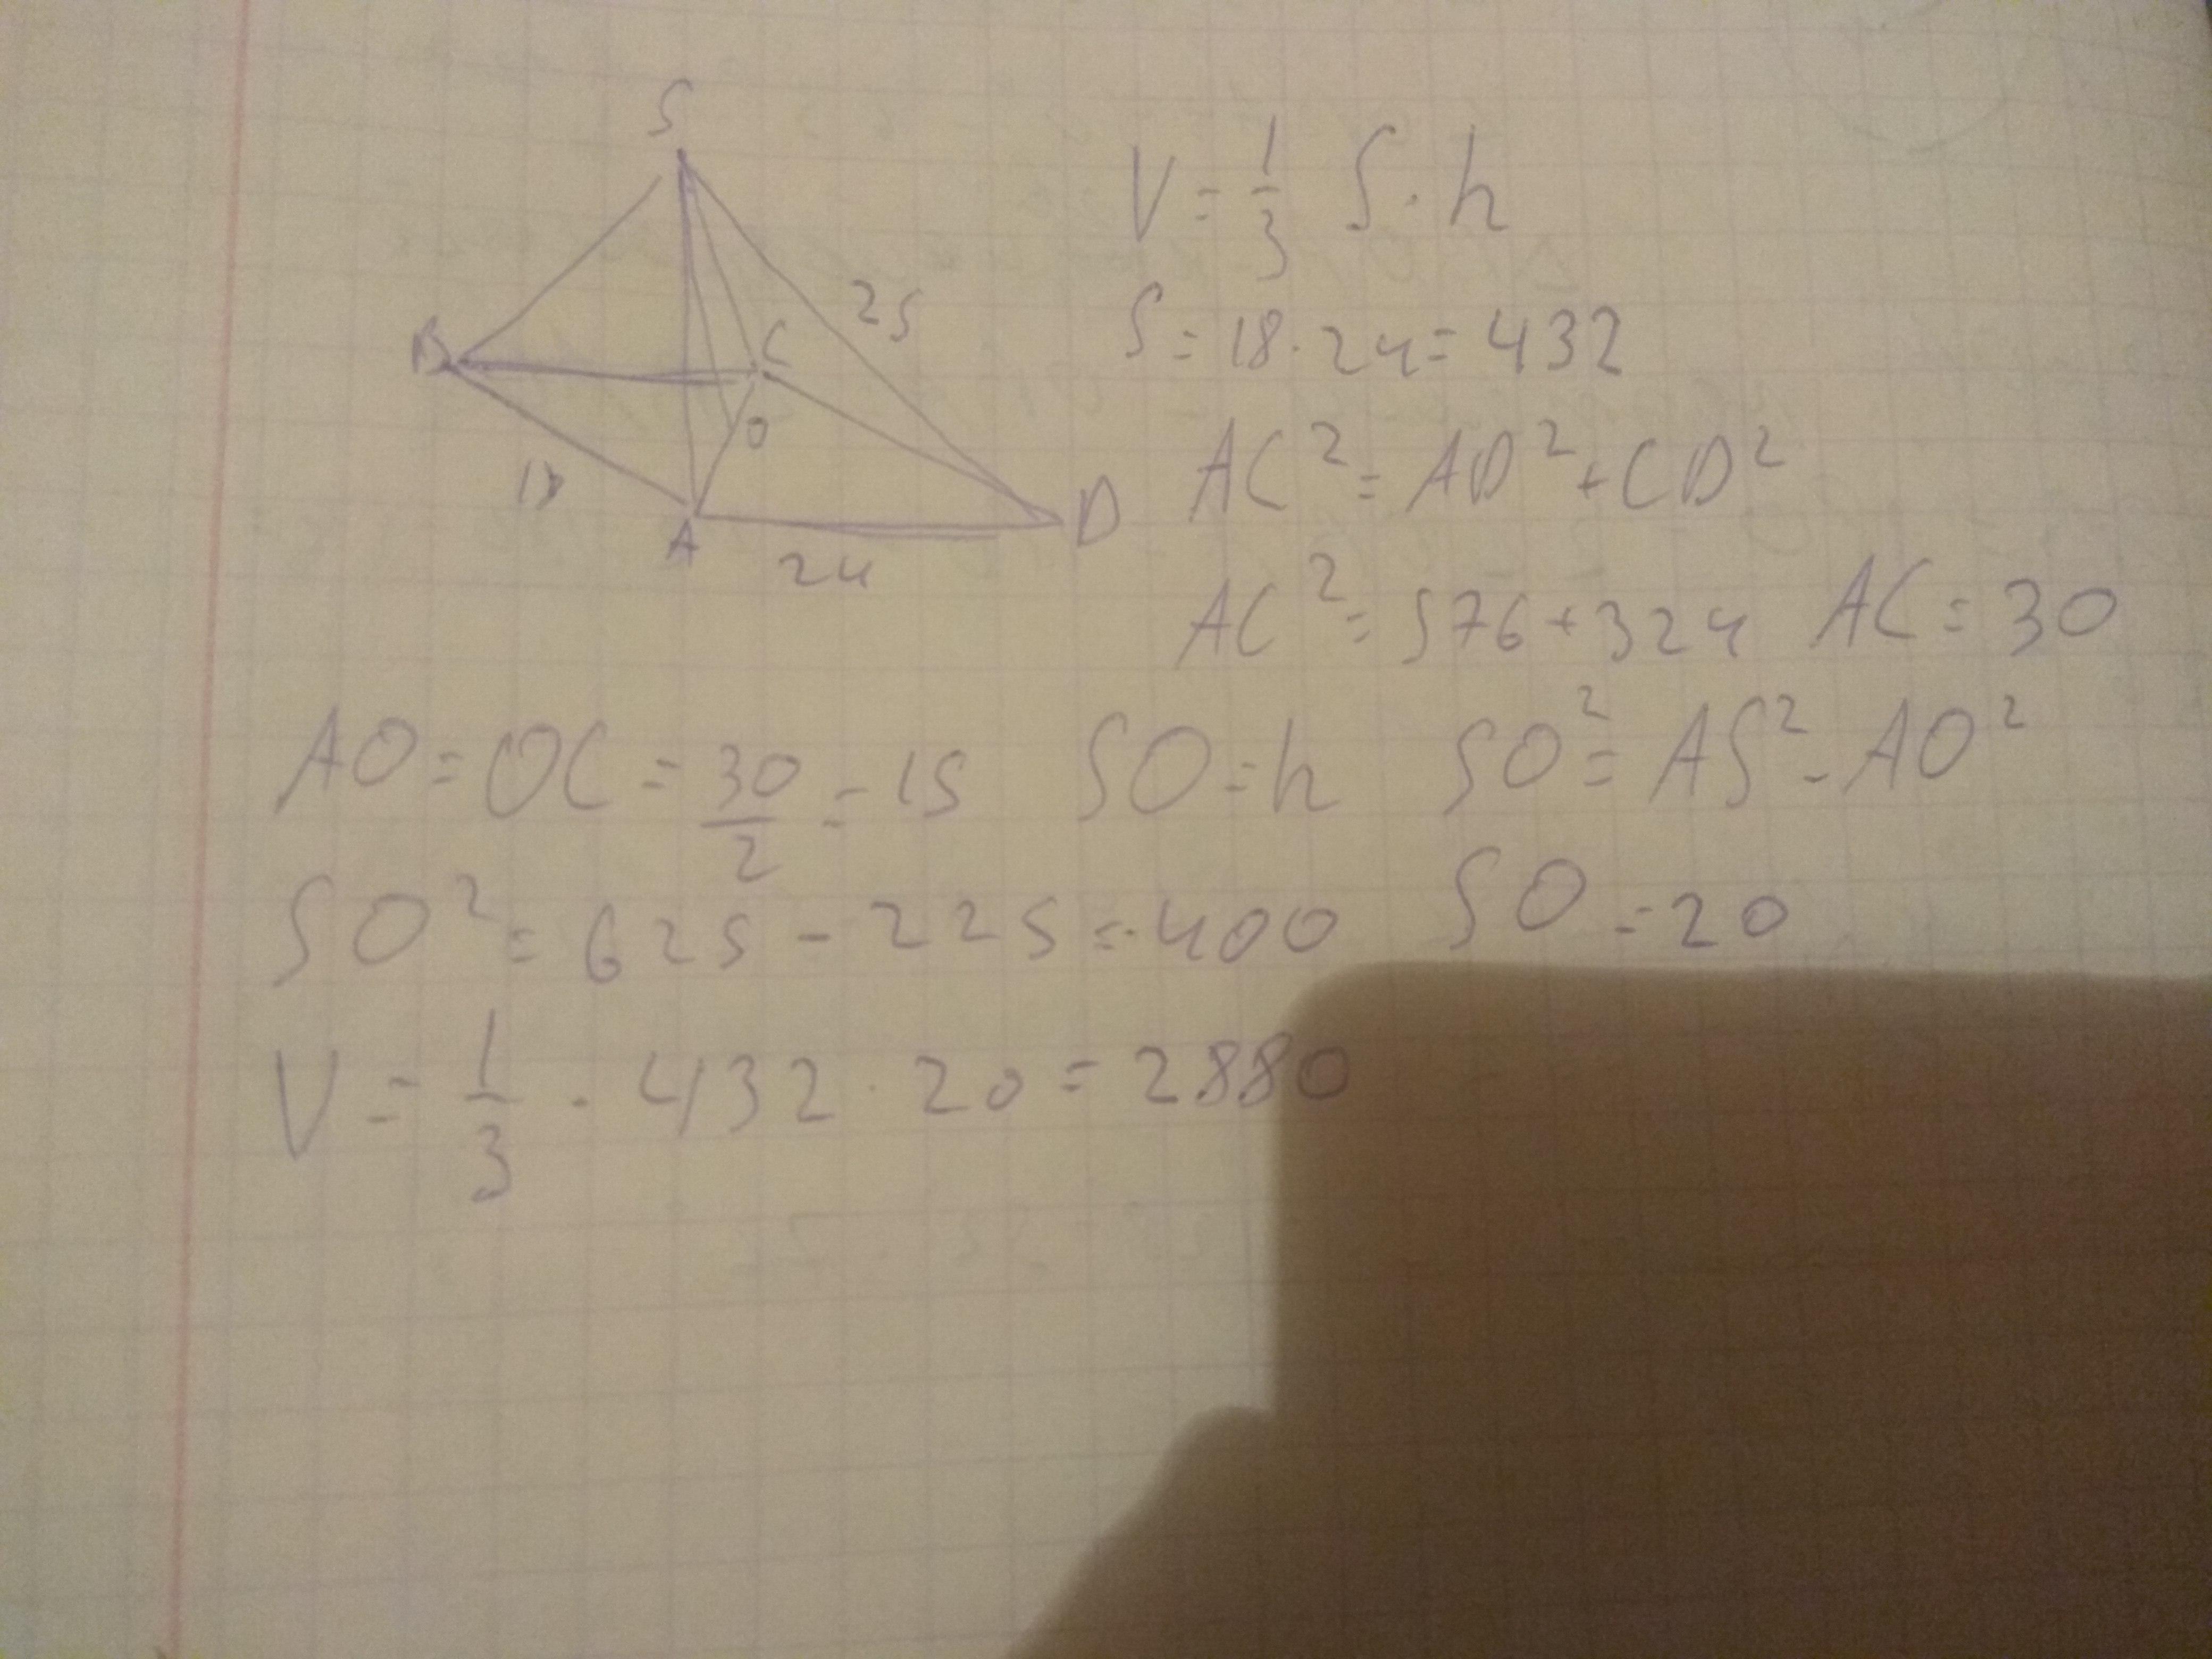 S
B
C
O
A
D
18
24
25
V = 1/3 S · h
S = 18 · 24 = 432
AC² = AD² + CD²
AC² = 576 + 324 AC = 30
AO = OC = 30/2 = 15 SO = h SO² = AS² - AO²
SO² = 625 - 225 = 400 SO = 20
V = 1/3 · 432 · 20 = 2880